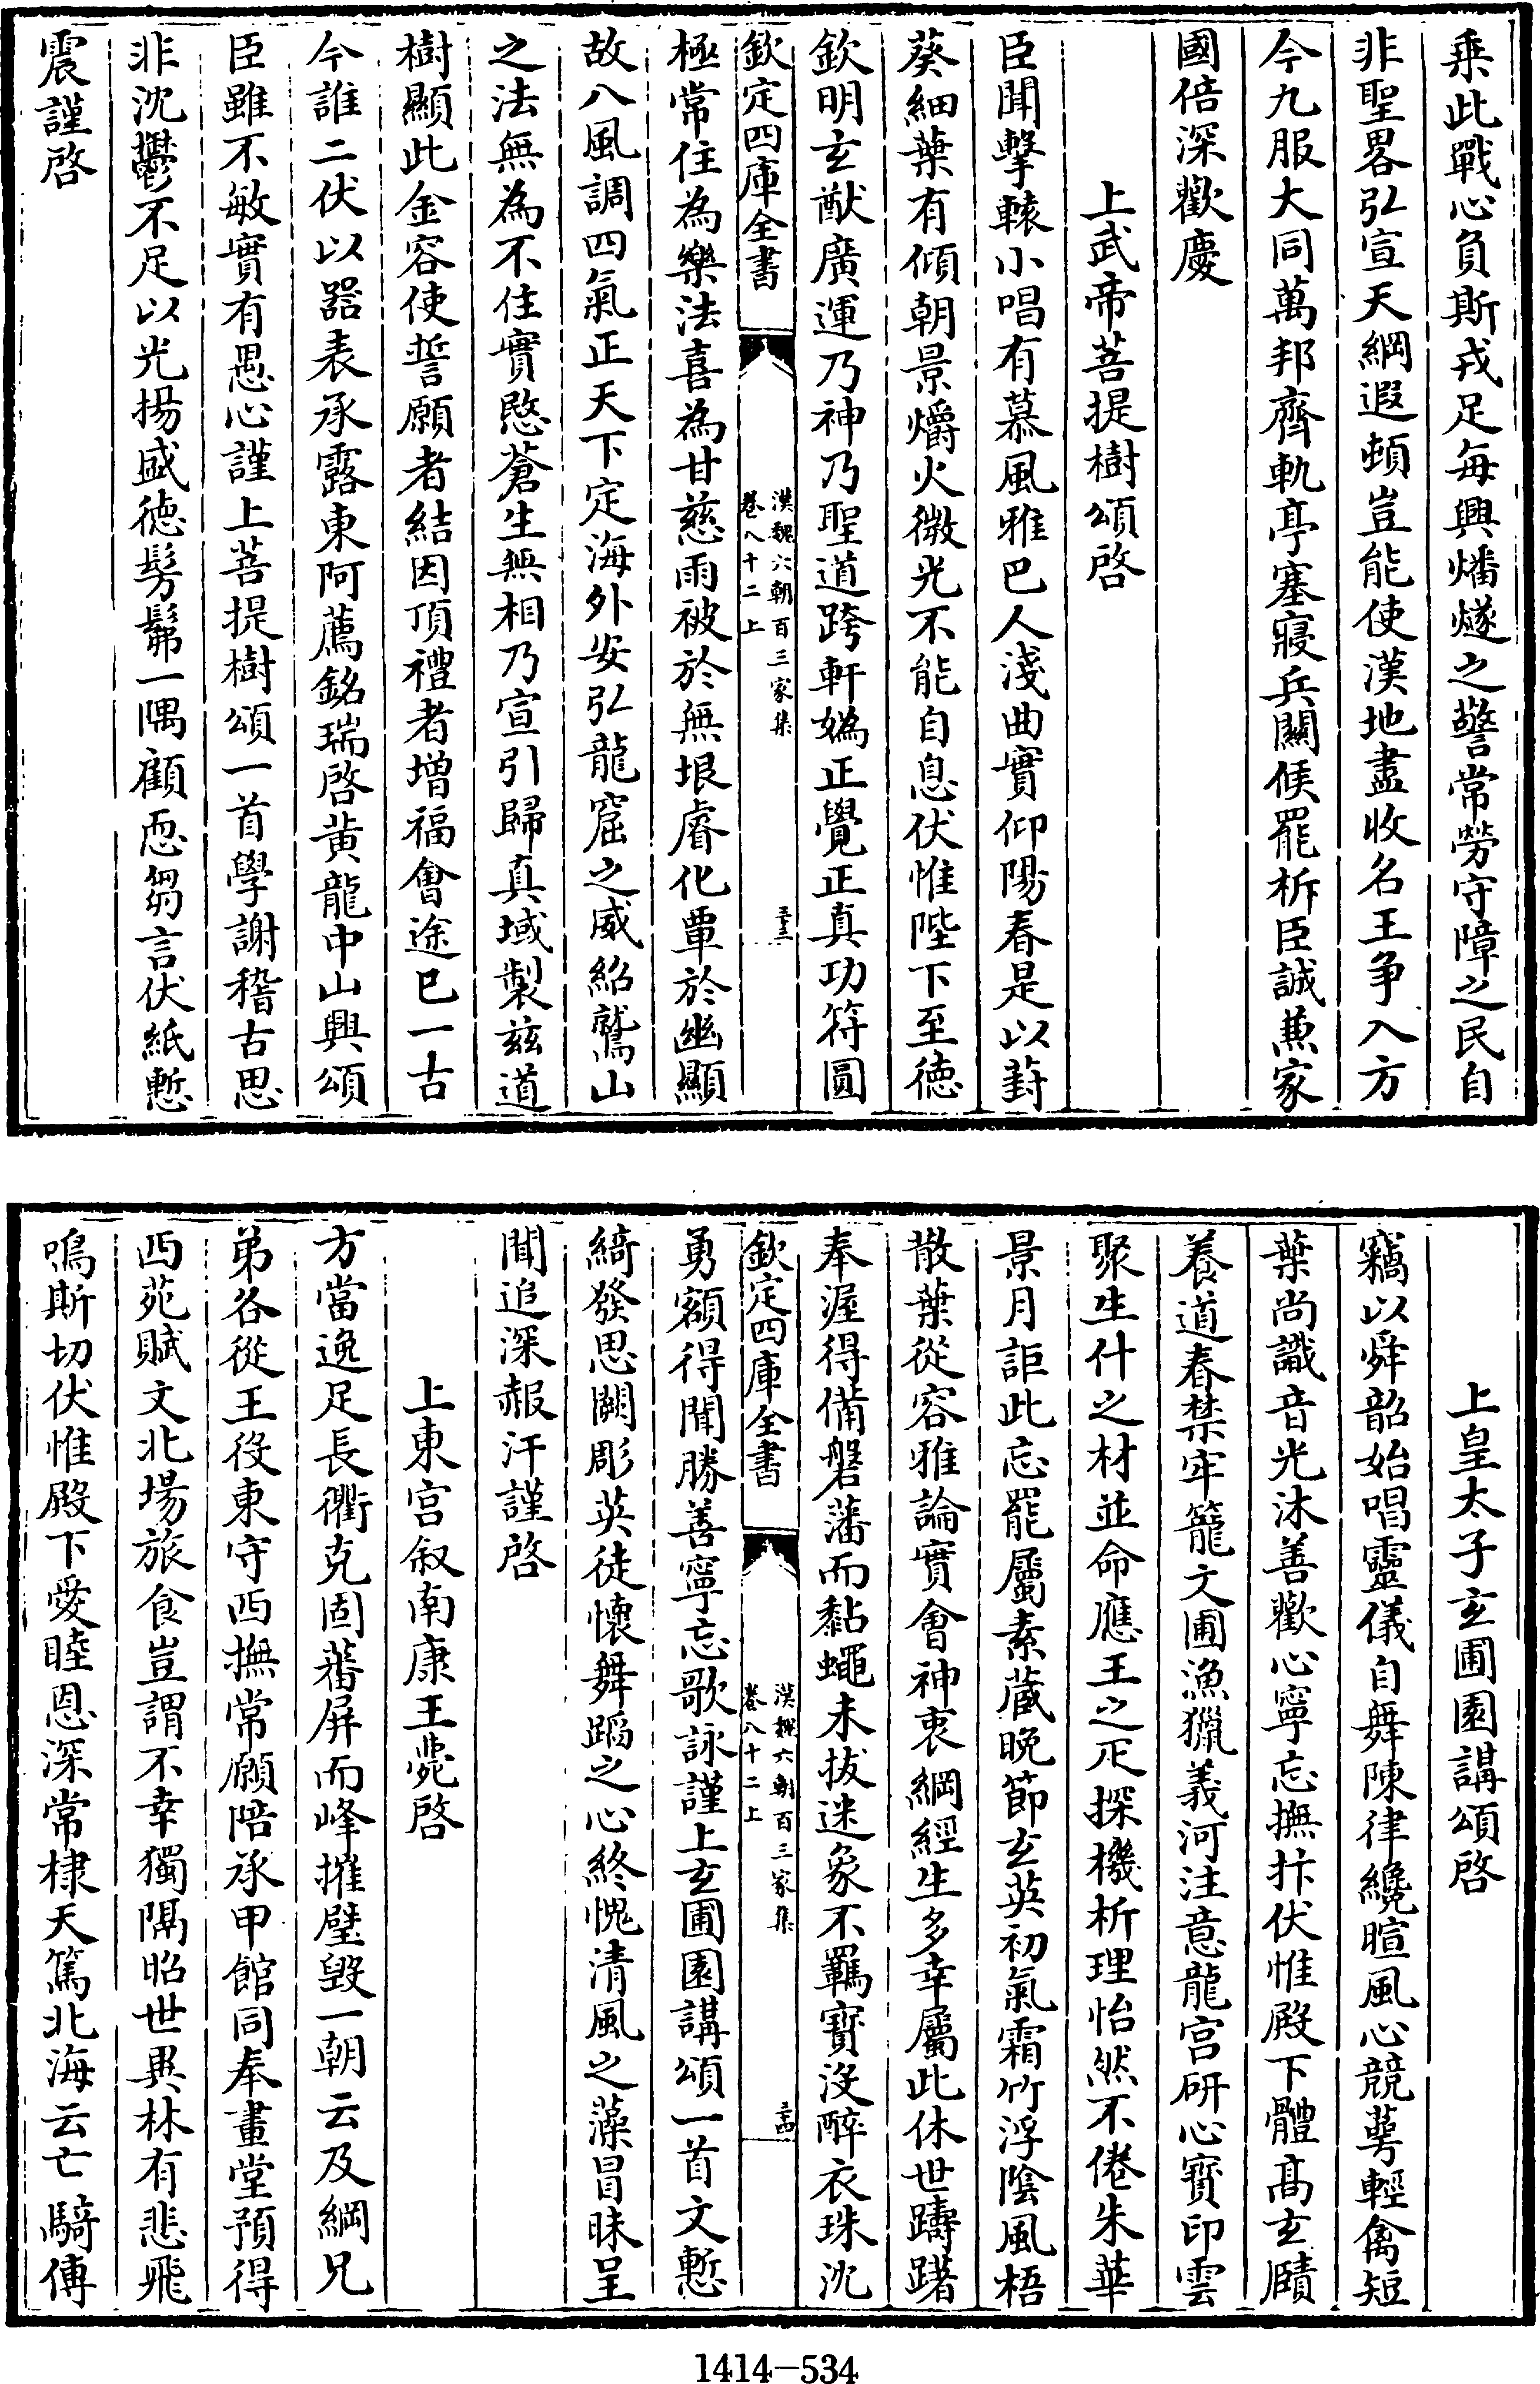 乘此戰心負斯戎足每興燔燧之警常勞守障之民自
非聖畧弘宣天網遐頓豈能使漢地盡收名王争入方
今九服大同萬邦齊軌亭塞寢兵關候罷柝臣誠兼家
國倍深歡慶
上武帝菩提樹頌啓
臣聞擊轅小唱有慕風雅巴人淺曲實仰陽春是以葑
葵細葉有傾朝景爝火微光不能自息伏惟陛下至德
欽明玄猷廣運乃神乃聖道跨軒媯正覺正真功符圓
欽定四庫全書
漢魏六朝百三家集
卷八十二上
三十三
極常住為樂法喜為甘慈雨被於無垠睿化覃於幽顯
故八風調四氣正天下定海外安弘龍窟之威紹鷲山
之法無為不住實愍蒼生無相乃宣引歸真域製兹道
樹顯此金容使誓願者結因頂禮者增福會途巳一古
今誰二伏以器表承露東阿薦銘瑞啓黄龍中山興頌
臣雖不敏實有愚心謹上菩提樹頌一首學謝稽古思
非沈鬱不足以光揚盛德髣髴一隅顧恧芻言伏紙慙
震謹啓
上皇太子玄圃園講頌啓
竊以舜韶始唱靈儀自舞陳律纔暄風心競萼輕禽短
葉尚識音光沐善歡心寧忘撫抃伏惟殿下體髙玄賾
養道春禁牢籠文圃漁獵義河注意龍宫研心寳印雲
聚生什之材並命應王之疋探機析理怡然不倦朱華
景月詎此忘罷屬素蕆晚節玄英初氣霜竹浮陰風梧
散葉從容雅論實會神衷綱經生多幸屬此休世躊躇
奉渥得備磐藩而黏蠅未拔迷象不羈寳沒醉衣珠沈
欽定四庫全書
漢魏六朝百三家集
卷八十二上
三十四
勇額得聞勝善寧忘歌詠謹上玄圃園講頌一首文慙
綺發思闕彫英徒懷舞蹈之心終愧清風之藻冒昧呈
聞追深赧汗謹啓
上東宫叙南康王薨啓
方當逸足長衢克固蕃屏而峰摧璧毁一朝云及綱兄
弟各從王役東守西撫常願陪承甲館同奉畫堂預得
西苑賦文北場旅食豈謂不幸獨隔昭世異林有悲飛
鳴斯切伏惟殿下愛睦恩深常棣天篤北海云亡騎傳
1414-534